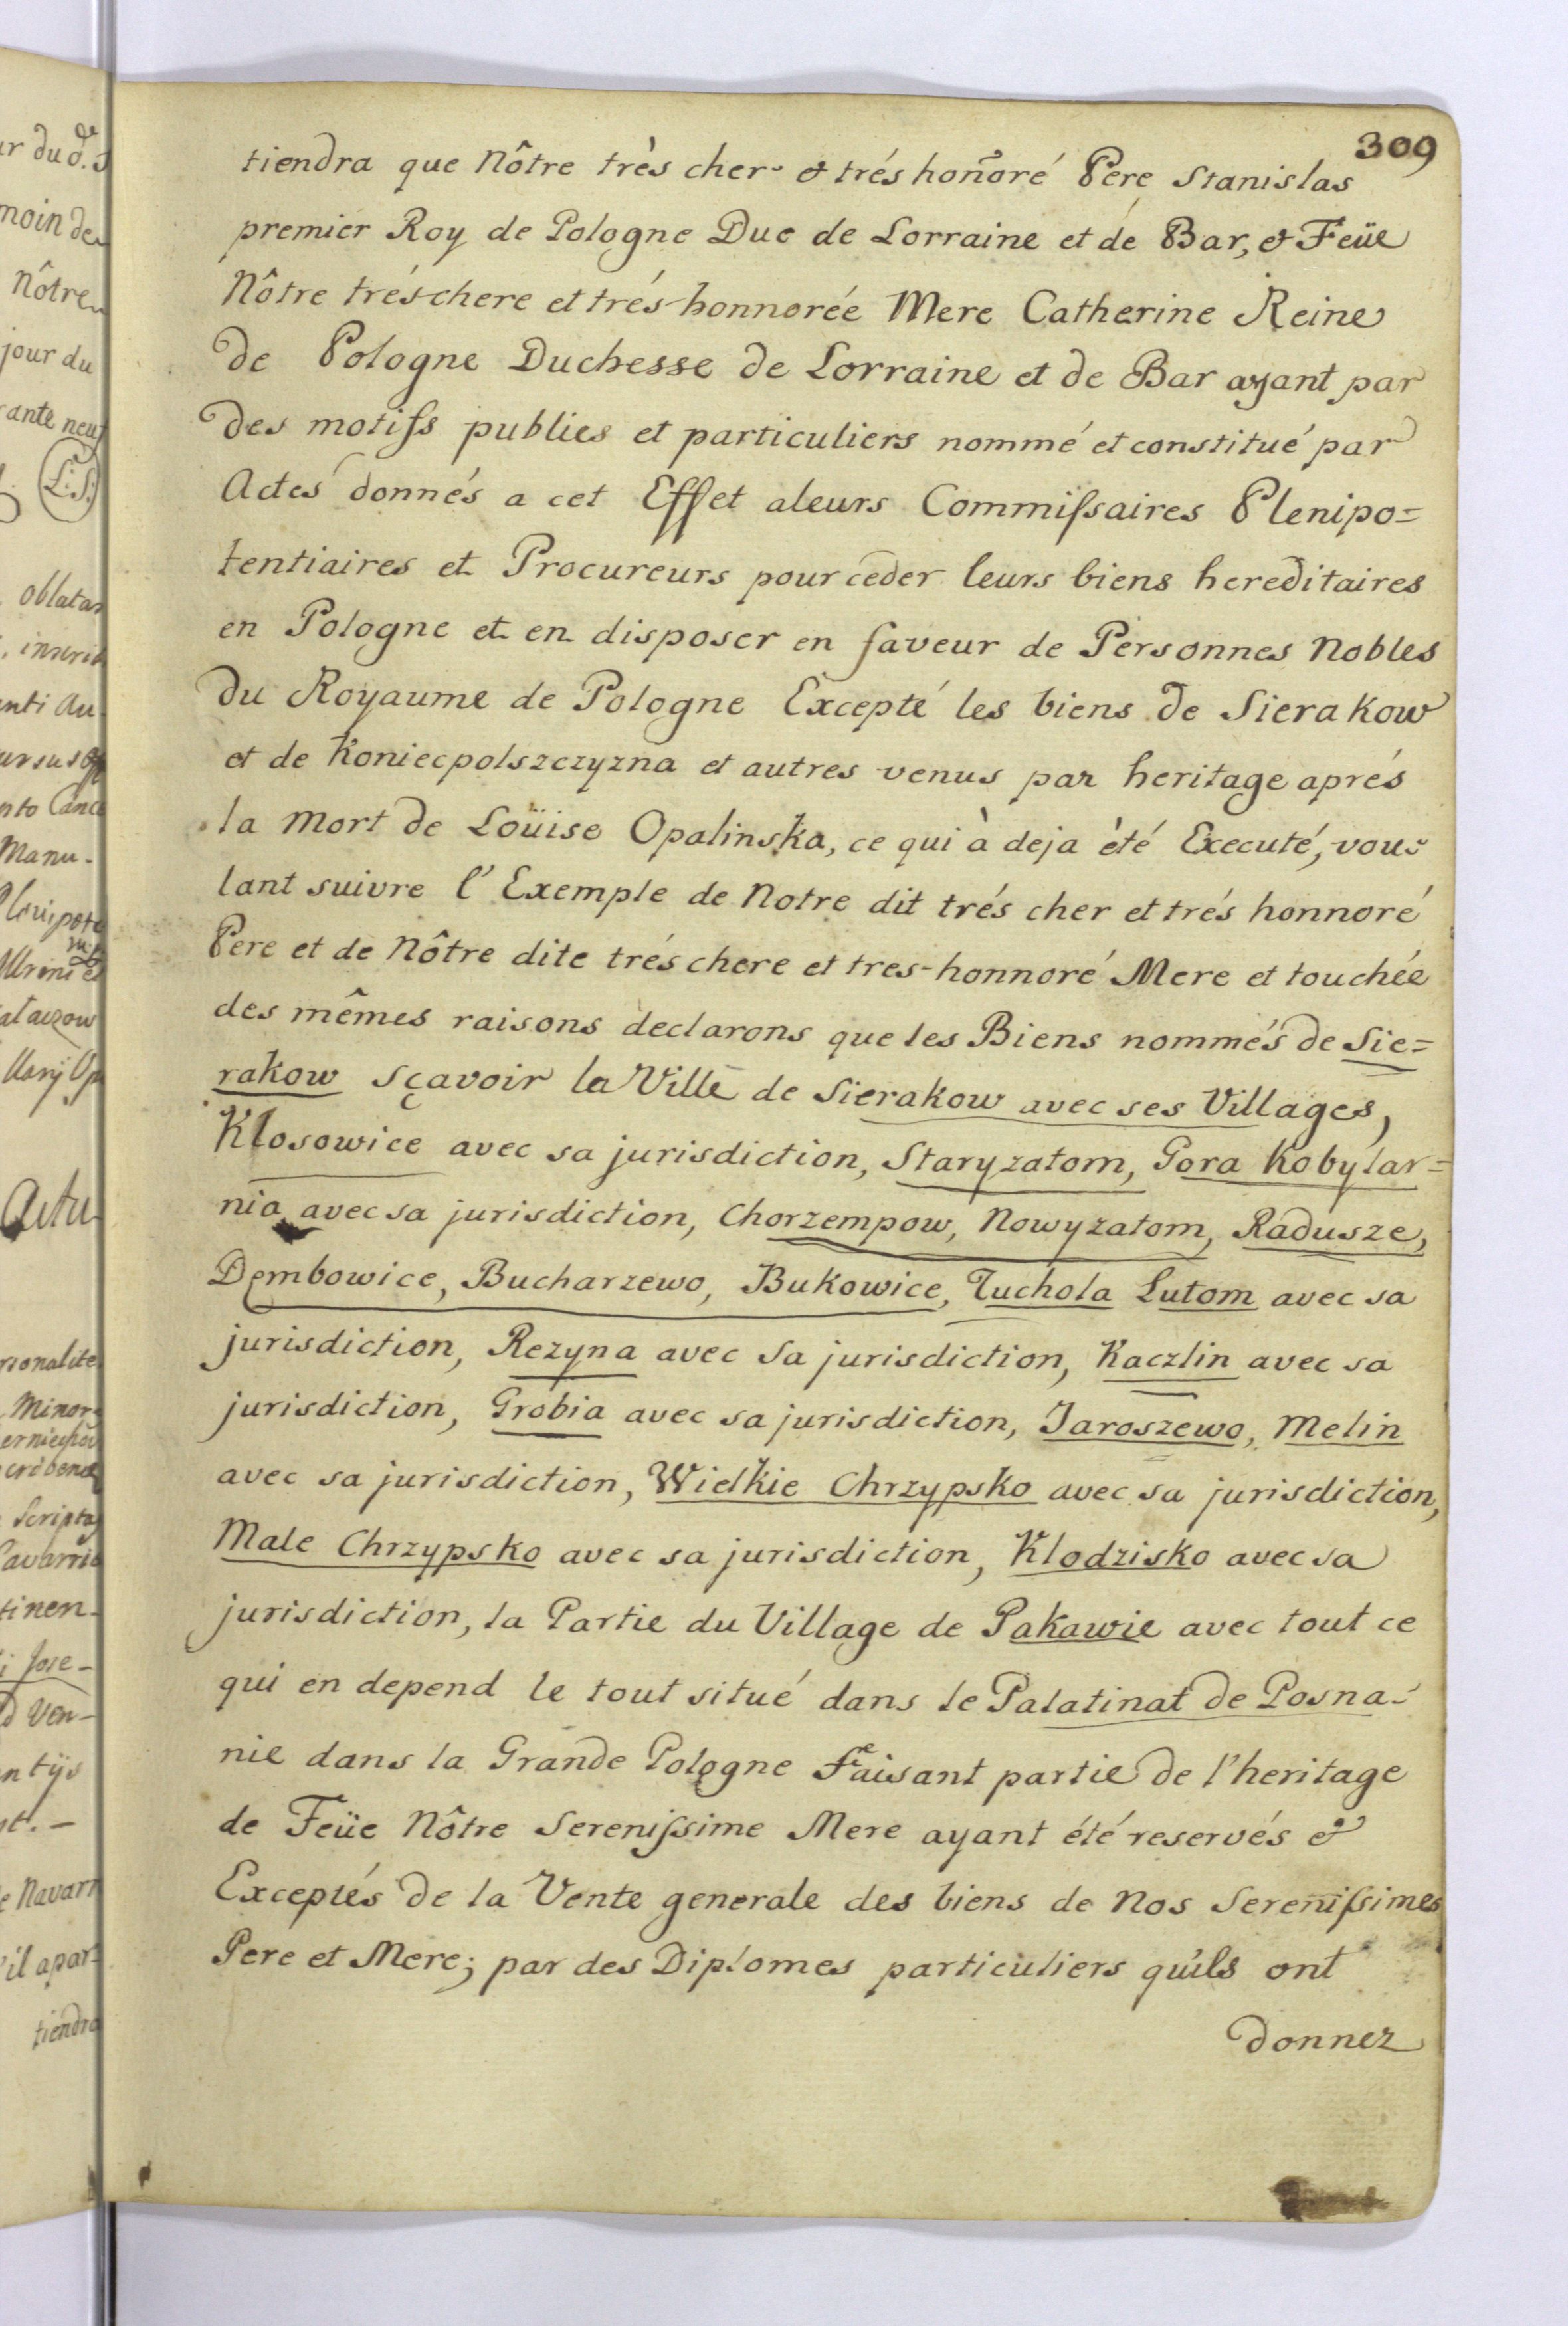 309
tiendra que Nôtre très cher & trés hoñoré Pere Stanislas
premier Roy de Pologne Duc de Lorraine et de Bar, & Feüe
Nôtre trés chere et trés-honnorée Mere Catherine Reine
de Pologne Duchesse de Lorraine et de Bar ayant par
des motifs publics et particuliers nommé et constitué par
Actes donnés a cet Effet aleurs Commißaires Plenipo=
tentiaires et Procureurs pour ceder leurs biens hereditaires
en Pologne et en disposer en faveur de Personnes Nobles
du Royaume de Pologne Excepté les biens de Sierakow
et de Koniecpolszczyzna et autres venus par heritage aprés
la Mort de Loüise Opalinska, ce qui à deja èté Executé, vou-
lant suivre l'Exemple de Notre dit trés cher et trés honnoré
Pere et de Nôtre dite trés chere et tres-honnoré Mere et touchée
des mêmes raisons declarons que les Biens nommés de Sie=
rakow sçavoir la Ville de Sierakow avec ses Villages,
Klosowice avec sa jurisdiction, Staryzatom, Gora Kobylar=
nia avec sa jurisdiction, Chorzempow, Nowyzatom, Radusze,
Dembowice, Bucharzewo, Bukowice, Tuchola Lutom avec sa
jurisdiction, Rezyna avec sa jurisdiction, Kaczlin avec sa
jurisdiction, Grobia avec sa jurisdiction, Jaroszewo, Melin
avec sa jurisdiction, Wielkie Chrzypsko avec sa jurisdiction,
Male Chrzypsko avec sa jurisdiction, Klodzisko avec sa
jurisdiction, la Partie du Village de Pakawie avec tout ce
qui en depend le tout situé dans le Palatinat de Posna-
nie dans la Grande Pologne Faisant partie de l'heritage
de Feüe Nôtre Sereniſsime Mere ayant été reservés &
Exceptés de la Vente generale des biens de Nos Sereniſsimes
Pere et Mere; par des Diplomes particuliers qu'ils ont
donnez